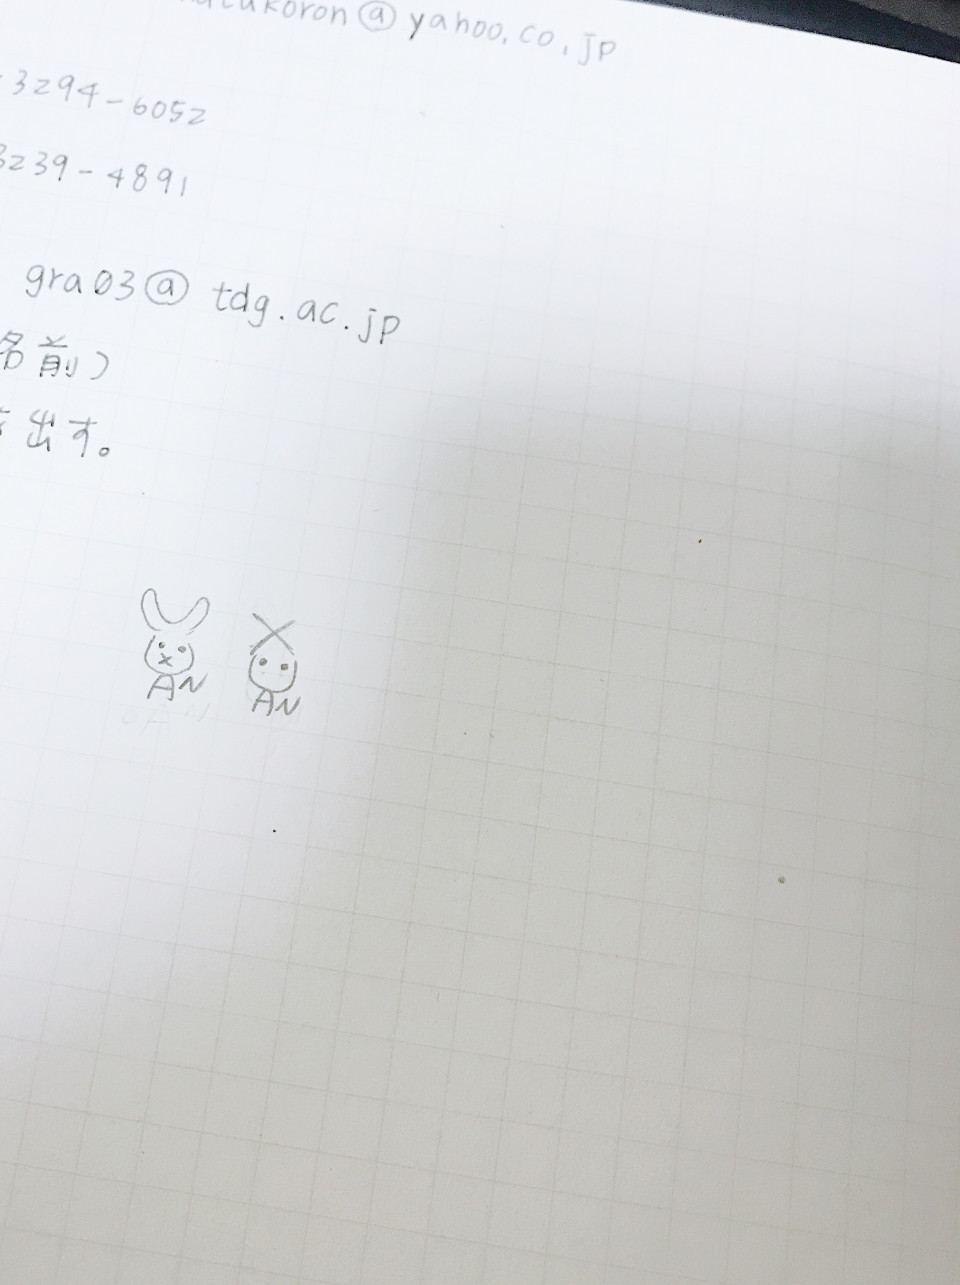 koron@yahoo.co.jp
3294-6052
3239-4891
gra03@tdg.ac.jp
名前)
出す。
AN AN